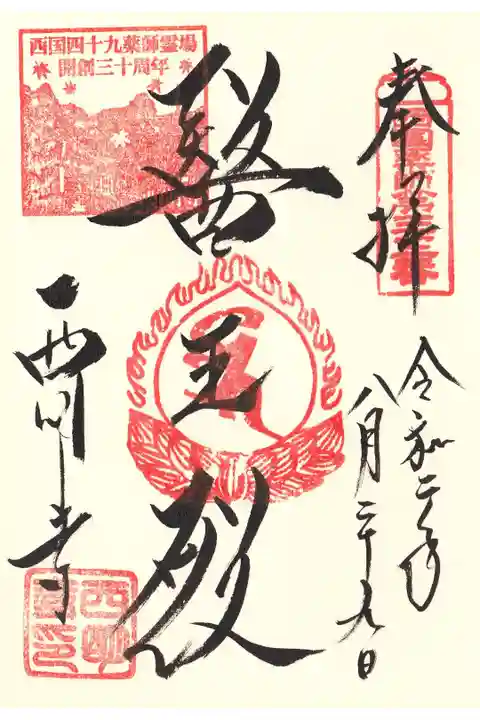 奉拝
令和二年
八月二十九日
醫王殿
西国四十九薬師霊場
開創三十周年
西明寺
西明
寺印